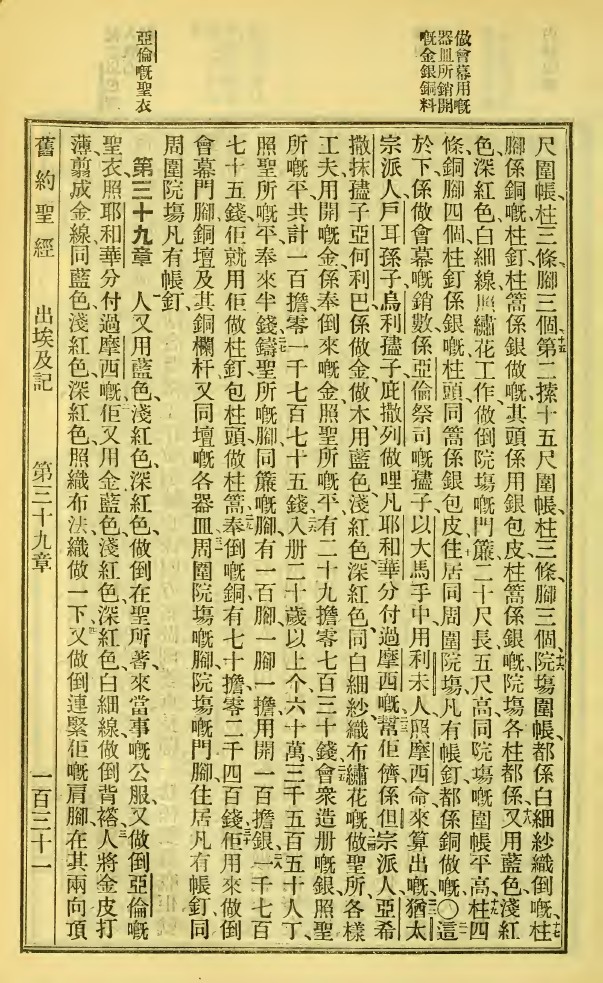 做會幕用嘅
器皿所銷開
嘅金銀銅料
亞倫嘅聖衣
尺圍帳、柱三條、腳三個、十五第二搽十五尺圍帳、柱三條、腳三個、十六院塲圍帳都係白細紗織倒嘅、十七柱
腳係銅嘅、柱釘柱篙係銀做嘅、其頭係用銀包皮、柱篙係銀嘅、院塲各柱都係、十八又用藍色、淺紅
色、深紅色、白細線、照繡花工作做倒院塲嘅門簾、二十尺長、五尺高、同院塲嘅圍帳平高、十九柱四
條、銅腳四個、柱釘係銀嘅、柱頭同篙係銀包皮、二十住居同周圍院塲凡有帳釘都係銅做嘅、〇二一這
於下係做會幕嘅銷數、係亞倫祭司嘅孻子以大馬手中用利未人照摩西命來算出嘅、二二猶太
宗派人戶耳孫子烏利孻子庇撒列做哩凡耶和華分付過摩西嘅、二三幫佢儕係但宗派人亞希
撒抹孻子亞何利巴、係做金做木、用藍色、淺紅色、深紅色、同白細紗織布繡花嘅、二四做聖所各樣
工夫用開嘅金、係奉倒來嘅金、照聖所嘅平有二十九擔零七百三十錢、二五會衆造册嘅銀、照聖
所嘅平共計一百擔零一千七百七十五錢、二六入册二十歲以上个六十萬三千五百五十人丁、
照聖所嘅平奉來半錢、二七鑄聖所嘅腳同簾嘅腳有一百腳、一腳一擔、用開一百擔銀、二八一千七百
七十五錢佢就用佢做柱釘、包柱頭、做柱篙、二九奉倒嘅銅有七十擔零二千四百錢、三十佢用來做倒
會幕門腳、銅壇、及其銅欄杆、又同壇嘅各器皿、三一周圍院塲嘅腳、院塲嘅門腳、住居凡有帳釘、同
周圍院塲凡有帳釘、
第三十九章　一人又用藍色、淺紅色、深紅色、做倒在聖所著來當事嘅公服、又做倒亞倫嘅
聖衣、照耶和華分付過摩西嘅、二佢又用金、藍色、淺紅色、深紅色、白細線、做倒背褡、三人將金皮打
薄、翦成金線、同藍色、淺紅色、深紅色、照織布法織做一下、四又做倒連緊佢嘅肩腳、在其兩向頂
舊約聖經　出埃及記　第三十九章　一百三十一